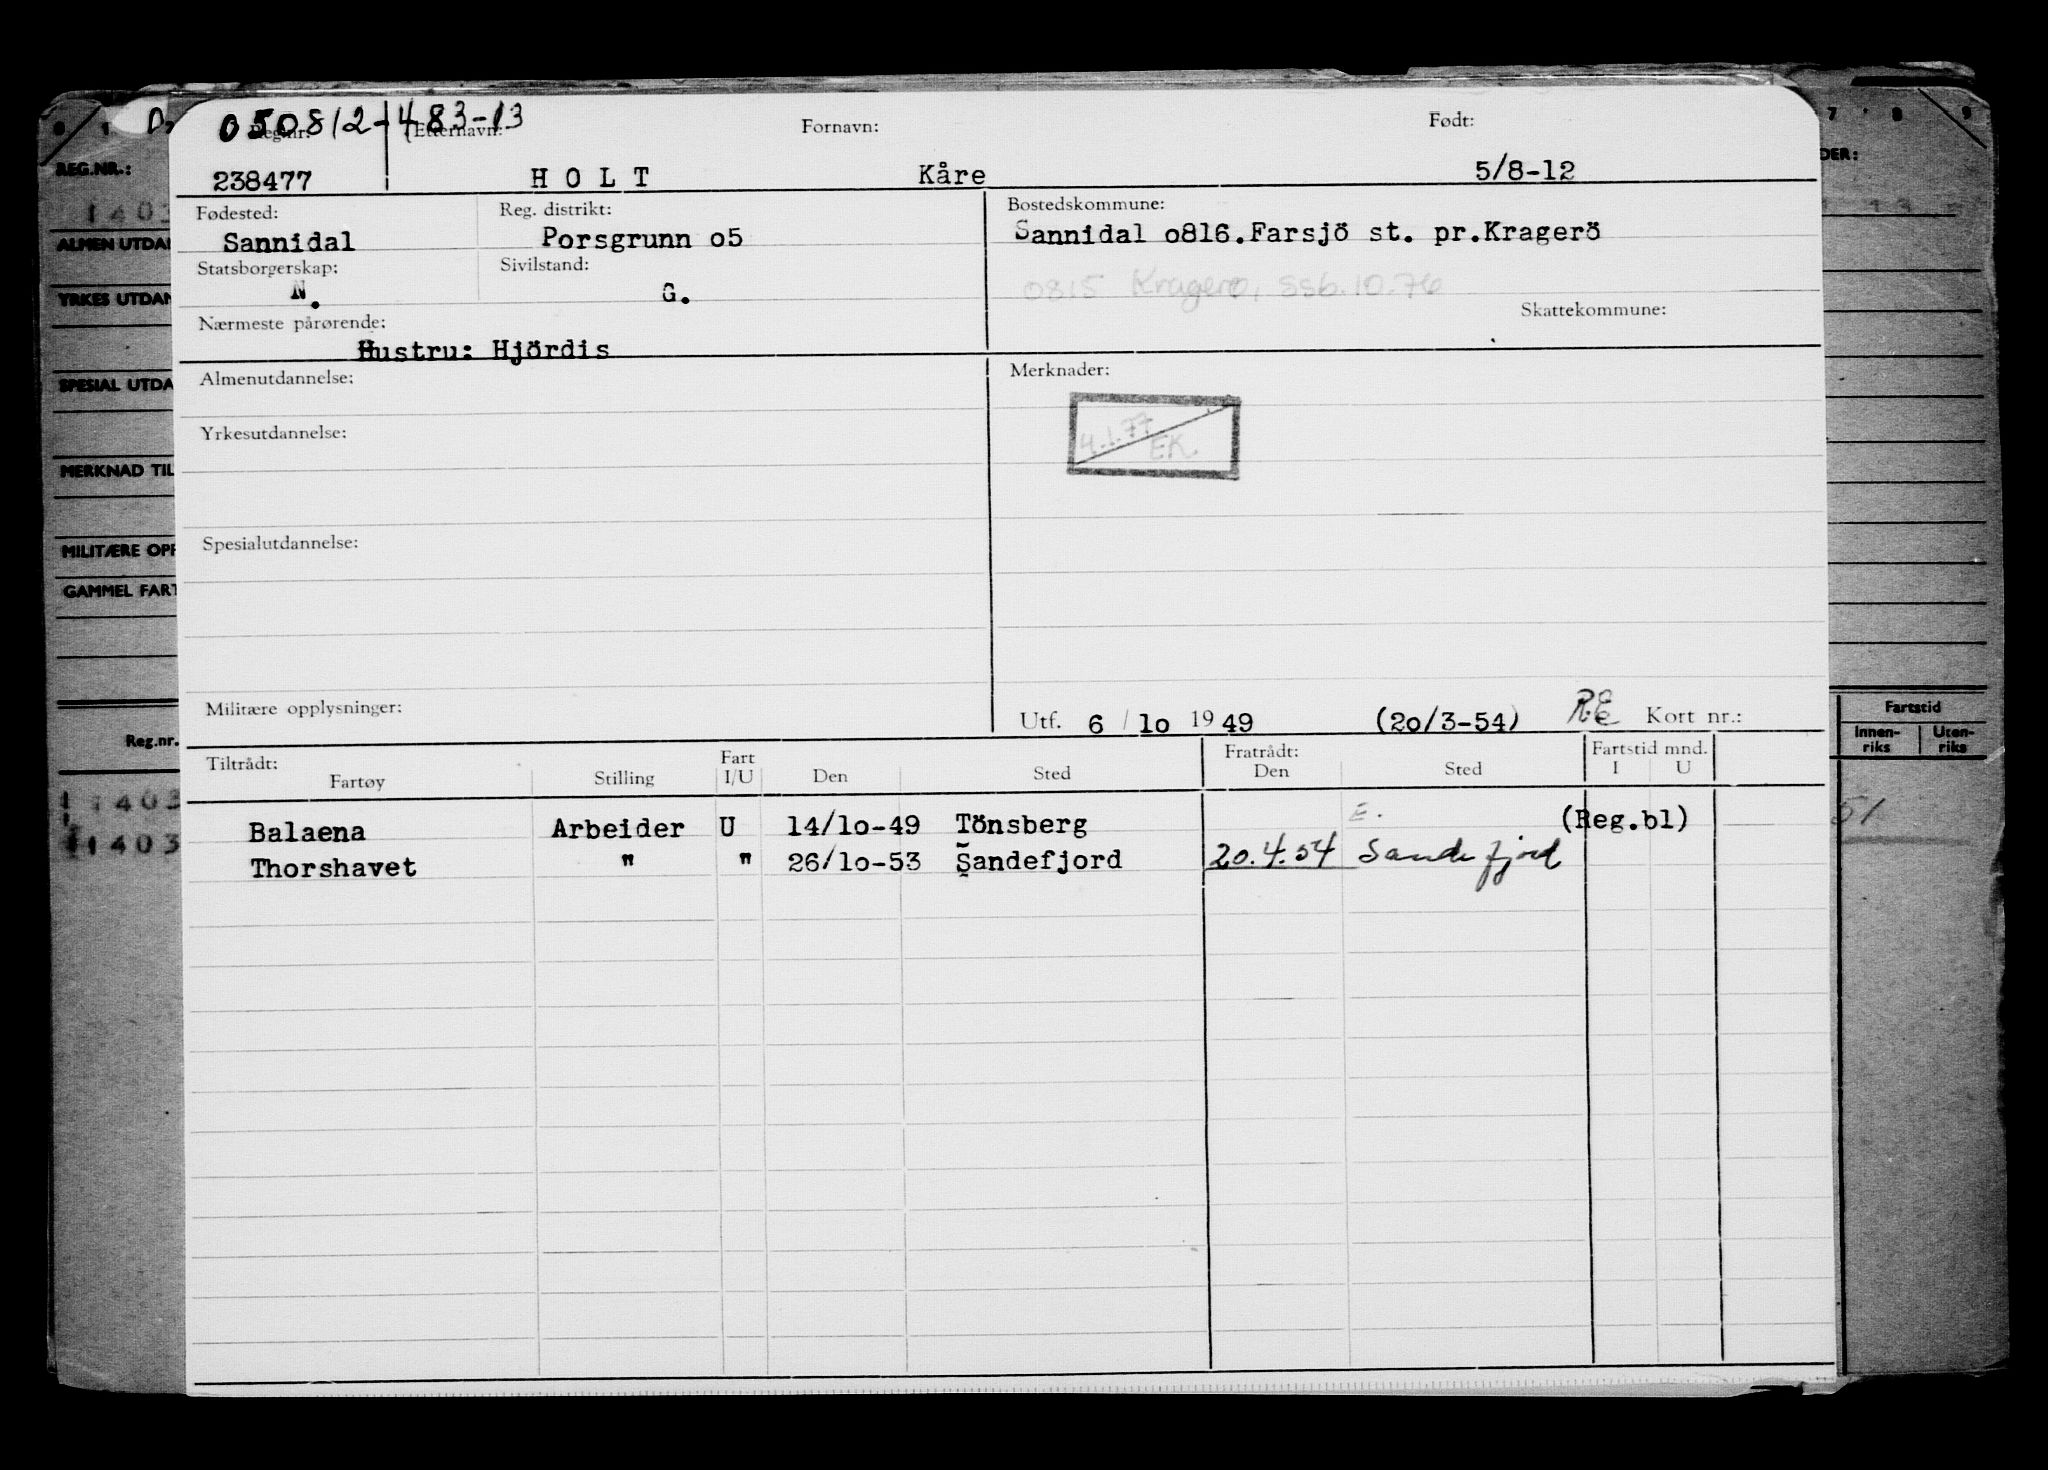 050812-483-13
Reg.nr: Etternavn: Fornavn: Født:
238477 HOLT Kåre 5/8-12
Fødested: Reg. distrikt: Bostedskommune:
Sannidal Porsgrunn o5 Sannidal o816.Farsjö st. pr.Kragerö
Statsborgerskap: Sivilstand:
N. G. 0815 Kragerø, ssb.10.76
Nærmeste pårørende: Skattekommune:
Hustru: Hjördis
Almenutdannelse: Merknader:
4.1.77 EK.
Yrkesutdannelse:
Spesialutdannelse:
Militære opplysninger: Utf. 6 / lo 19 49 (2o/3-54) RE Kort nr.:
Tiltrådt: Fart Fratrådt: Fartstid mnd.
Fartøy Stilling I/U Den Sted Den Sted I U
Balaena Arbeider U 14/lo-49 Tönsberg E. (Reg.bl)
Thorshavet " " 26/lo-53 Sandefjord 20.4.54 Sandefjord
REG.NR.:
1403
ALMEN UTDA
YRKES UTDAN
SPESIAL UTDA
MERKNAD TIL
MILITÆRE OPP
GAMMEL FART
Reg.nr.
1403
1403
7 8 9
DER:
Fartstid
Innen-riks Uten-riks
51